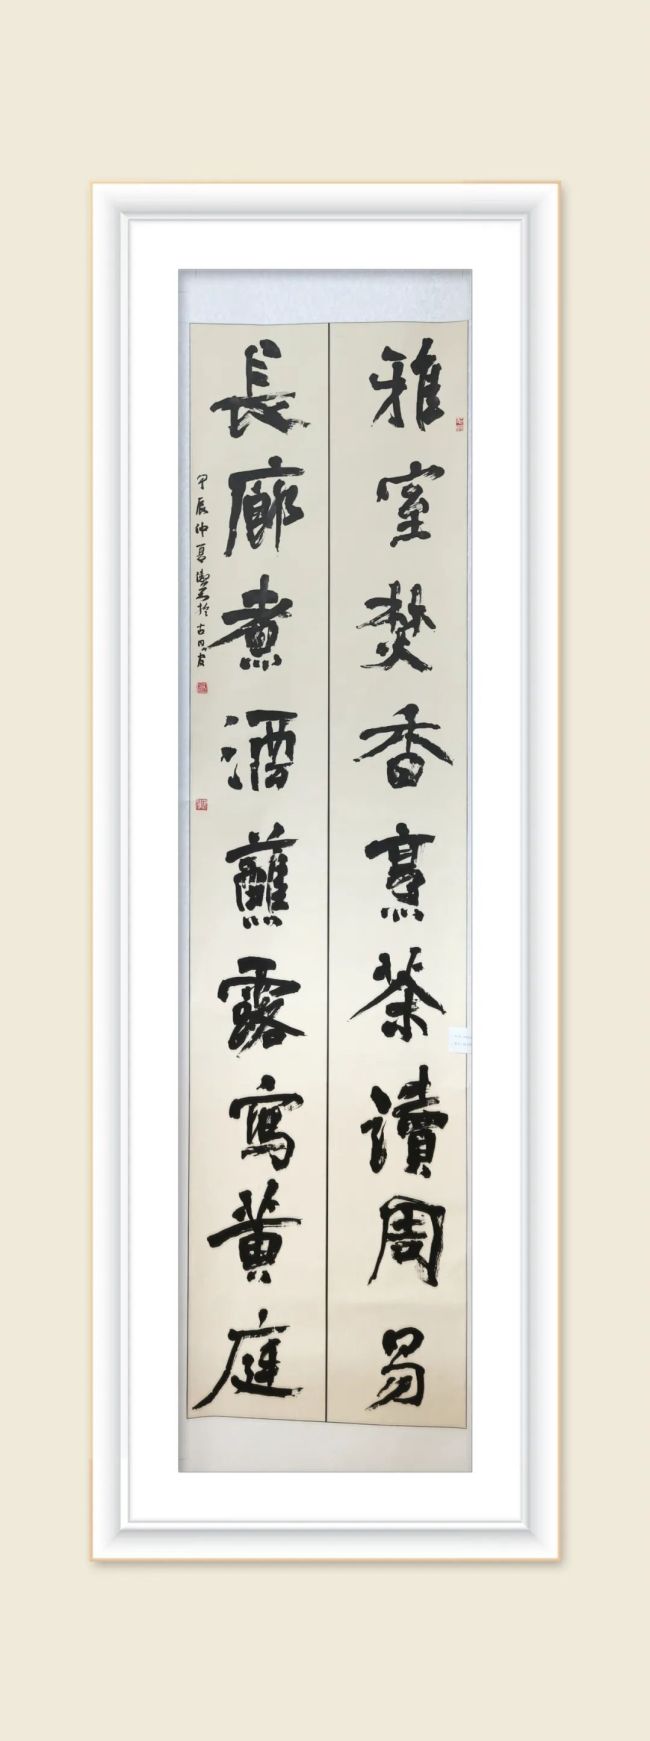 雅室焚香烹茶讀周易
長廊煮酒蘸露寫黃庭
甲辰仲夏